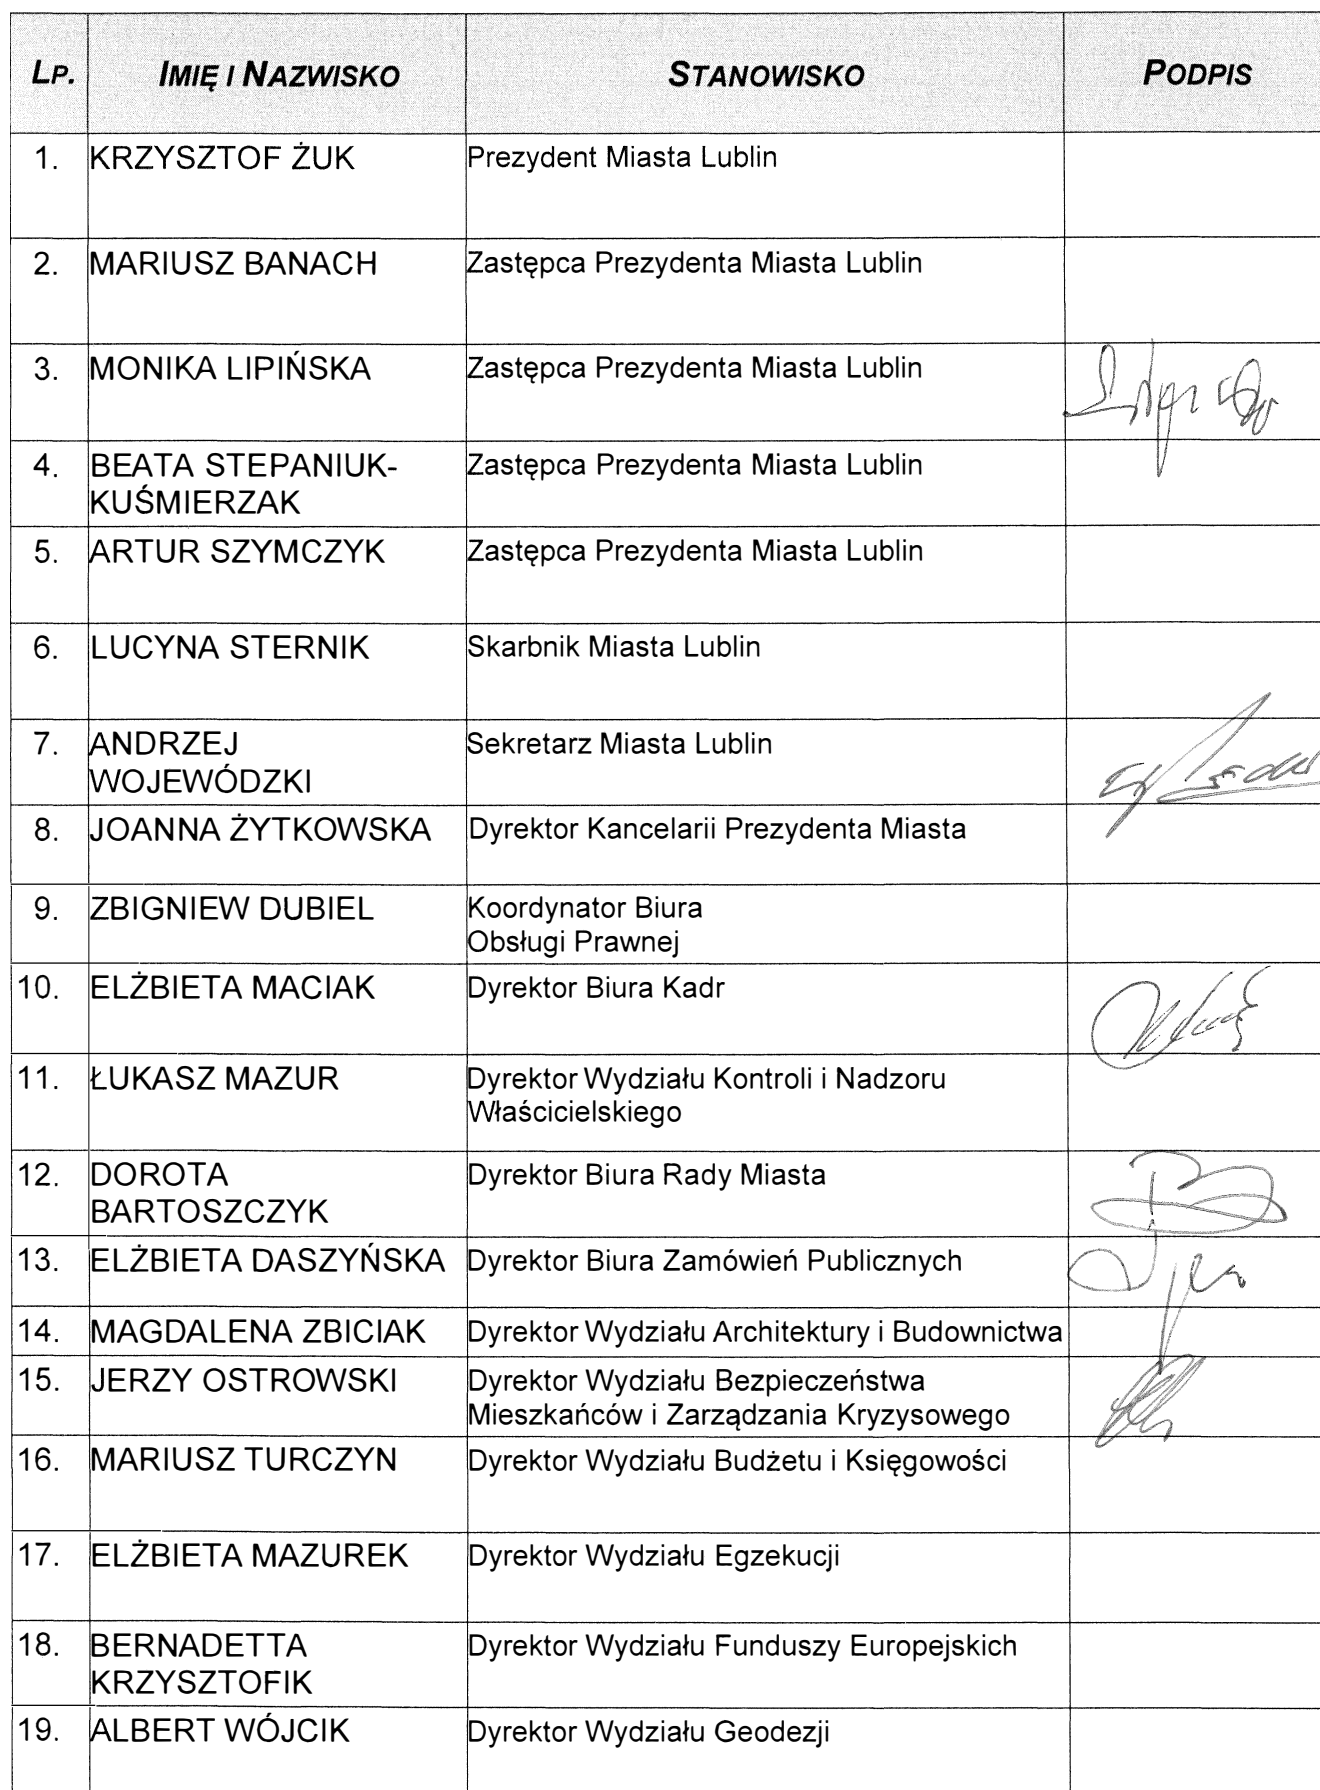 LP. IMIĘ I NAZWISKO STANOWISKO PODPIS
1. KRZYSZTOF ŻUK Prezydent Miasta Lublin
2. MARIUSZ BANACH Zastępca Prezydenta Miasta Lublin
3. MONIKA LIPIŃSKA Zastępca Prezydenta Miasta Lublin
4. BEATA STEPANIUK- Zastępca Prezydenta Miasta Lublin
KUŚMIERZAK
5. ARTUR SZYMCZYK Zastępca Prezydenta Miasta Lublin
6. LUCYNA STERNIK Skarbnik Miasta Lublin
7. ANDRZEJ Sekretarz Miasta Lublin
WOJEWÓDZKI
8. JOANNA ŻYTKOWSKA Dyrektor Kancelarii Prezydenta Miasta
9. ZBIGNIEW DUBIEL Koordynator Biura
Obsługi Prawnej
10. ELŻBIETA MACIAK Dyrektor Biura Kadr
11. ŁUKASZ MAZUR Dyrektor Wydziału Kontroli i Nadzoru
Właścicielskiego
12. DOROTA Dyrektor Biura Rady Miasta
BARTOSZCZYK
13. ELŻBIETA DASZYŃSKA Dyrektor Biura Zamówień Publicznych
14. MAGDALENA ZBICIAK Dyrektor Wydziału Architektury i Budownictwa
15. JERZY OSTROWSKI Dyrektor Wydziału Bezpieczeństwa
Mieszkańców i Zarządzania Kryzysowego
16. MARIUSZ TURCZYN Dyrektor Wydziału Budżetu i Księgowości
17. ELŻBIETA MAZUREK Dyrektor Wydziału Egzekucji
18. BERNADETTA Dyrektor Wydziału Funduszy Europejskich
KRZYSZTOFIK
19. ALBERT WÓJCIK Dyrektor Wydziału Geodezji